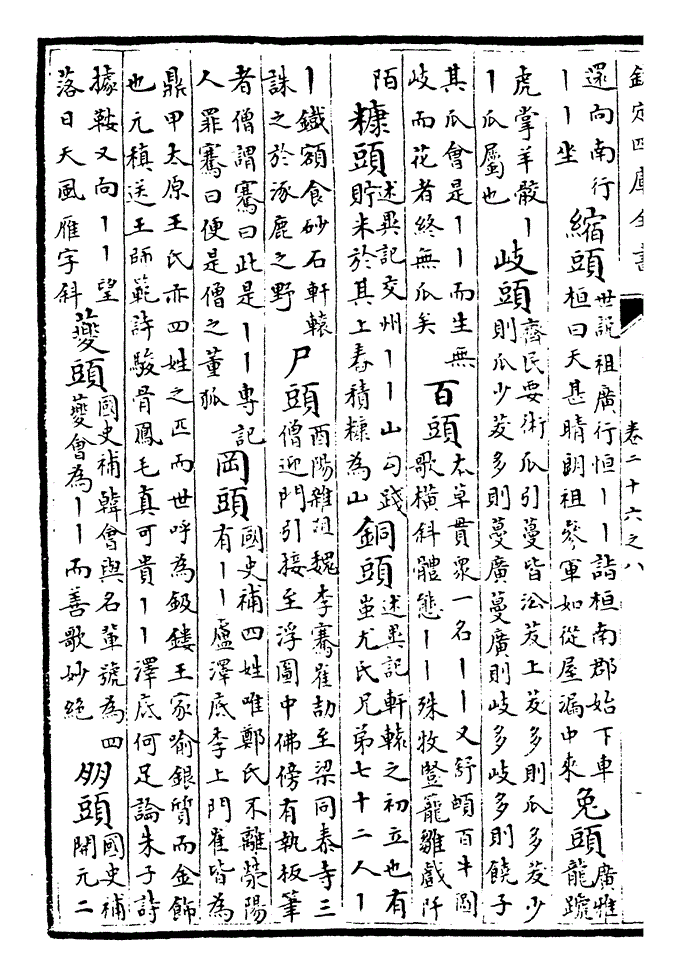 欽定四庫全書　卷二十六之八
還向南行丨丨坐　縮頭　世說祖廣行恒丨丨詣桓南郡始下車桓曰天甚晴朗祖參軍如從屋漏中來　兔頭　廣雅龍蹏
虎掌羊骹丨丨瓜屬也　岐頭　齊民要術瓜引蔓皆沿茇上茇多則瓜多茇少則瓜少茇多則蔓廣蔓廣則岐多岐多則饒子
其瓜會是丨丨而生無岐而花者終無瓜矣　百頭　本草貫眾一名丨丨又舒頔百牛圖歌橫斜體態丨丨殊牧豎龍雛戲阡
陌　糠頭　述異記交州丨丨山勾踐貯米於其上舂積糠為山　銅頭　述異記軒轅之初立也有蚩尤氏兄弟七十二人丨
丨鐵額食砂石軒轅誅之於涿鹿之野　尸頭　酉陽雜俎魏李騫崔劼至梁同泰寺三僧迎門引接至浮圖中佛傍有執板筆
者僧謂騫曰此是丨丨專記人罪騫曰便是僧之董狐　岡頭　國史補四姓唯鄭氏不離滎陽有丨丨盧澤底李土門崔皆為
鼎甲太原王氏亦四姓之匹而世呼為鈒鏤王家喻銀質而金飾也元稹送王師範許駿骨鳳毛真可貴丨丨澤底何足論朱子詩
據鞍又向丨丨望落日天風雁字斜　夔頭　國史補韓會與名輩號為四夔會為丨丨而善歌妙絶　頭　國史補開元二